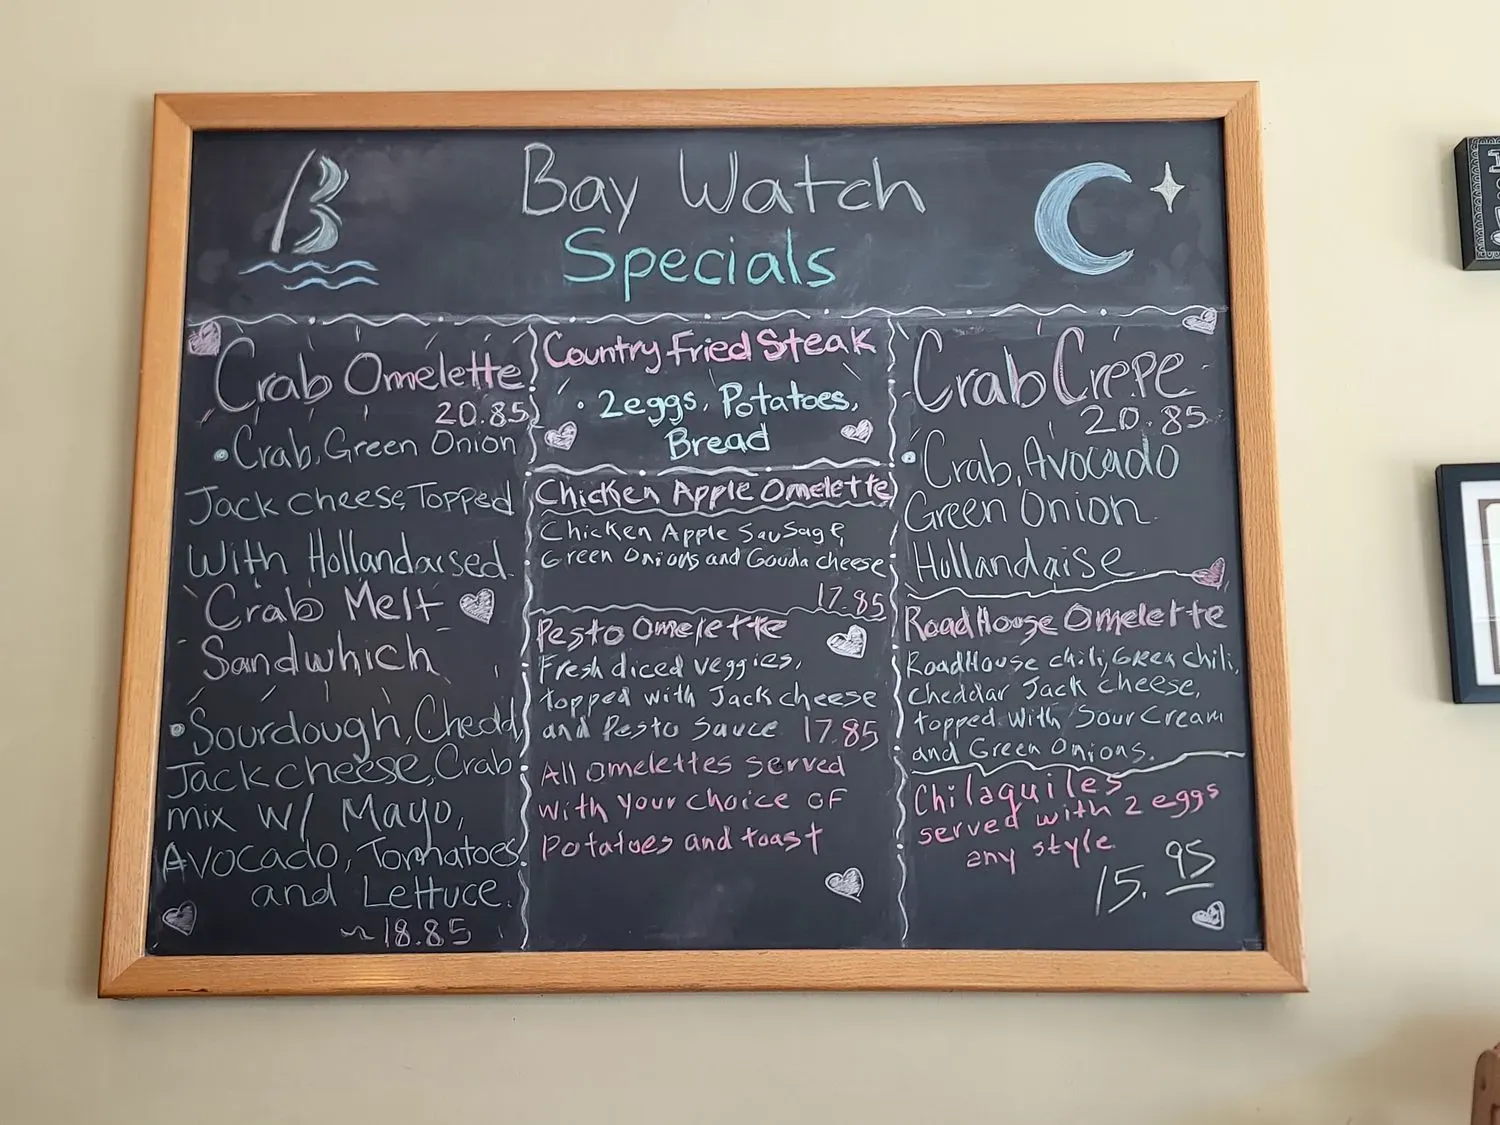 Bay Watch
Specials
Crab Omelette
20.85
•Crab, Green Onion
Jack cheese, Topped
With Hollandaised
Crab Melt
Sandwhich
•Sourdough, Chedd
Jack cheese, Crab
mix w/ Mayo,
Avocado, Tomatoes
and Lettuce.
~18.85
Country Fried Steak
• 2eggs, Potatoes,
Bread
Chicken Apple Omelette
Chicken Apple Sausage,
Green Onions and Gouda cheese
17.85
Pesto Omelette
Fresh diced veggies,
topped with Jack cheese
and Pesto Sauce 17.85
All omelettes served
with your choice of
Potatoes and toast
Crab Crepe
20.85
•Crab, Avocado
Green Onion
Hollandaise
RoadHouse Omelette
RoadHouse chili, Green chili,
Cheddar Jack cheese,
topped with Sour Cream
and Green Onions.
Chilaquiles
served with 2 eggs
any style
15.95